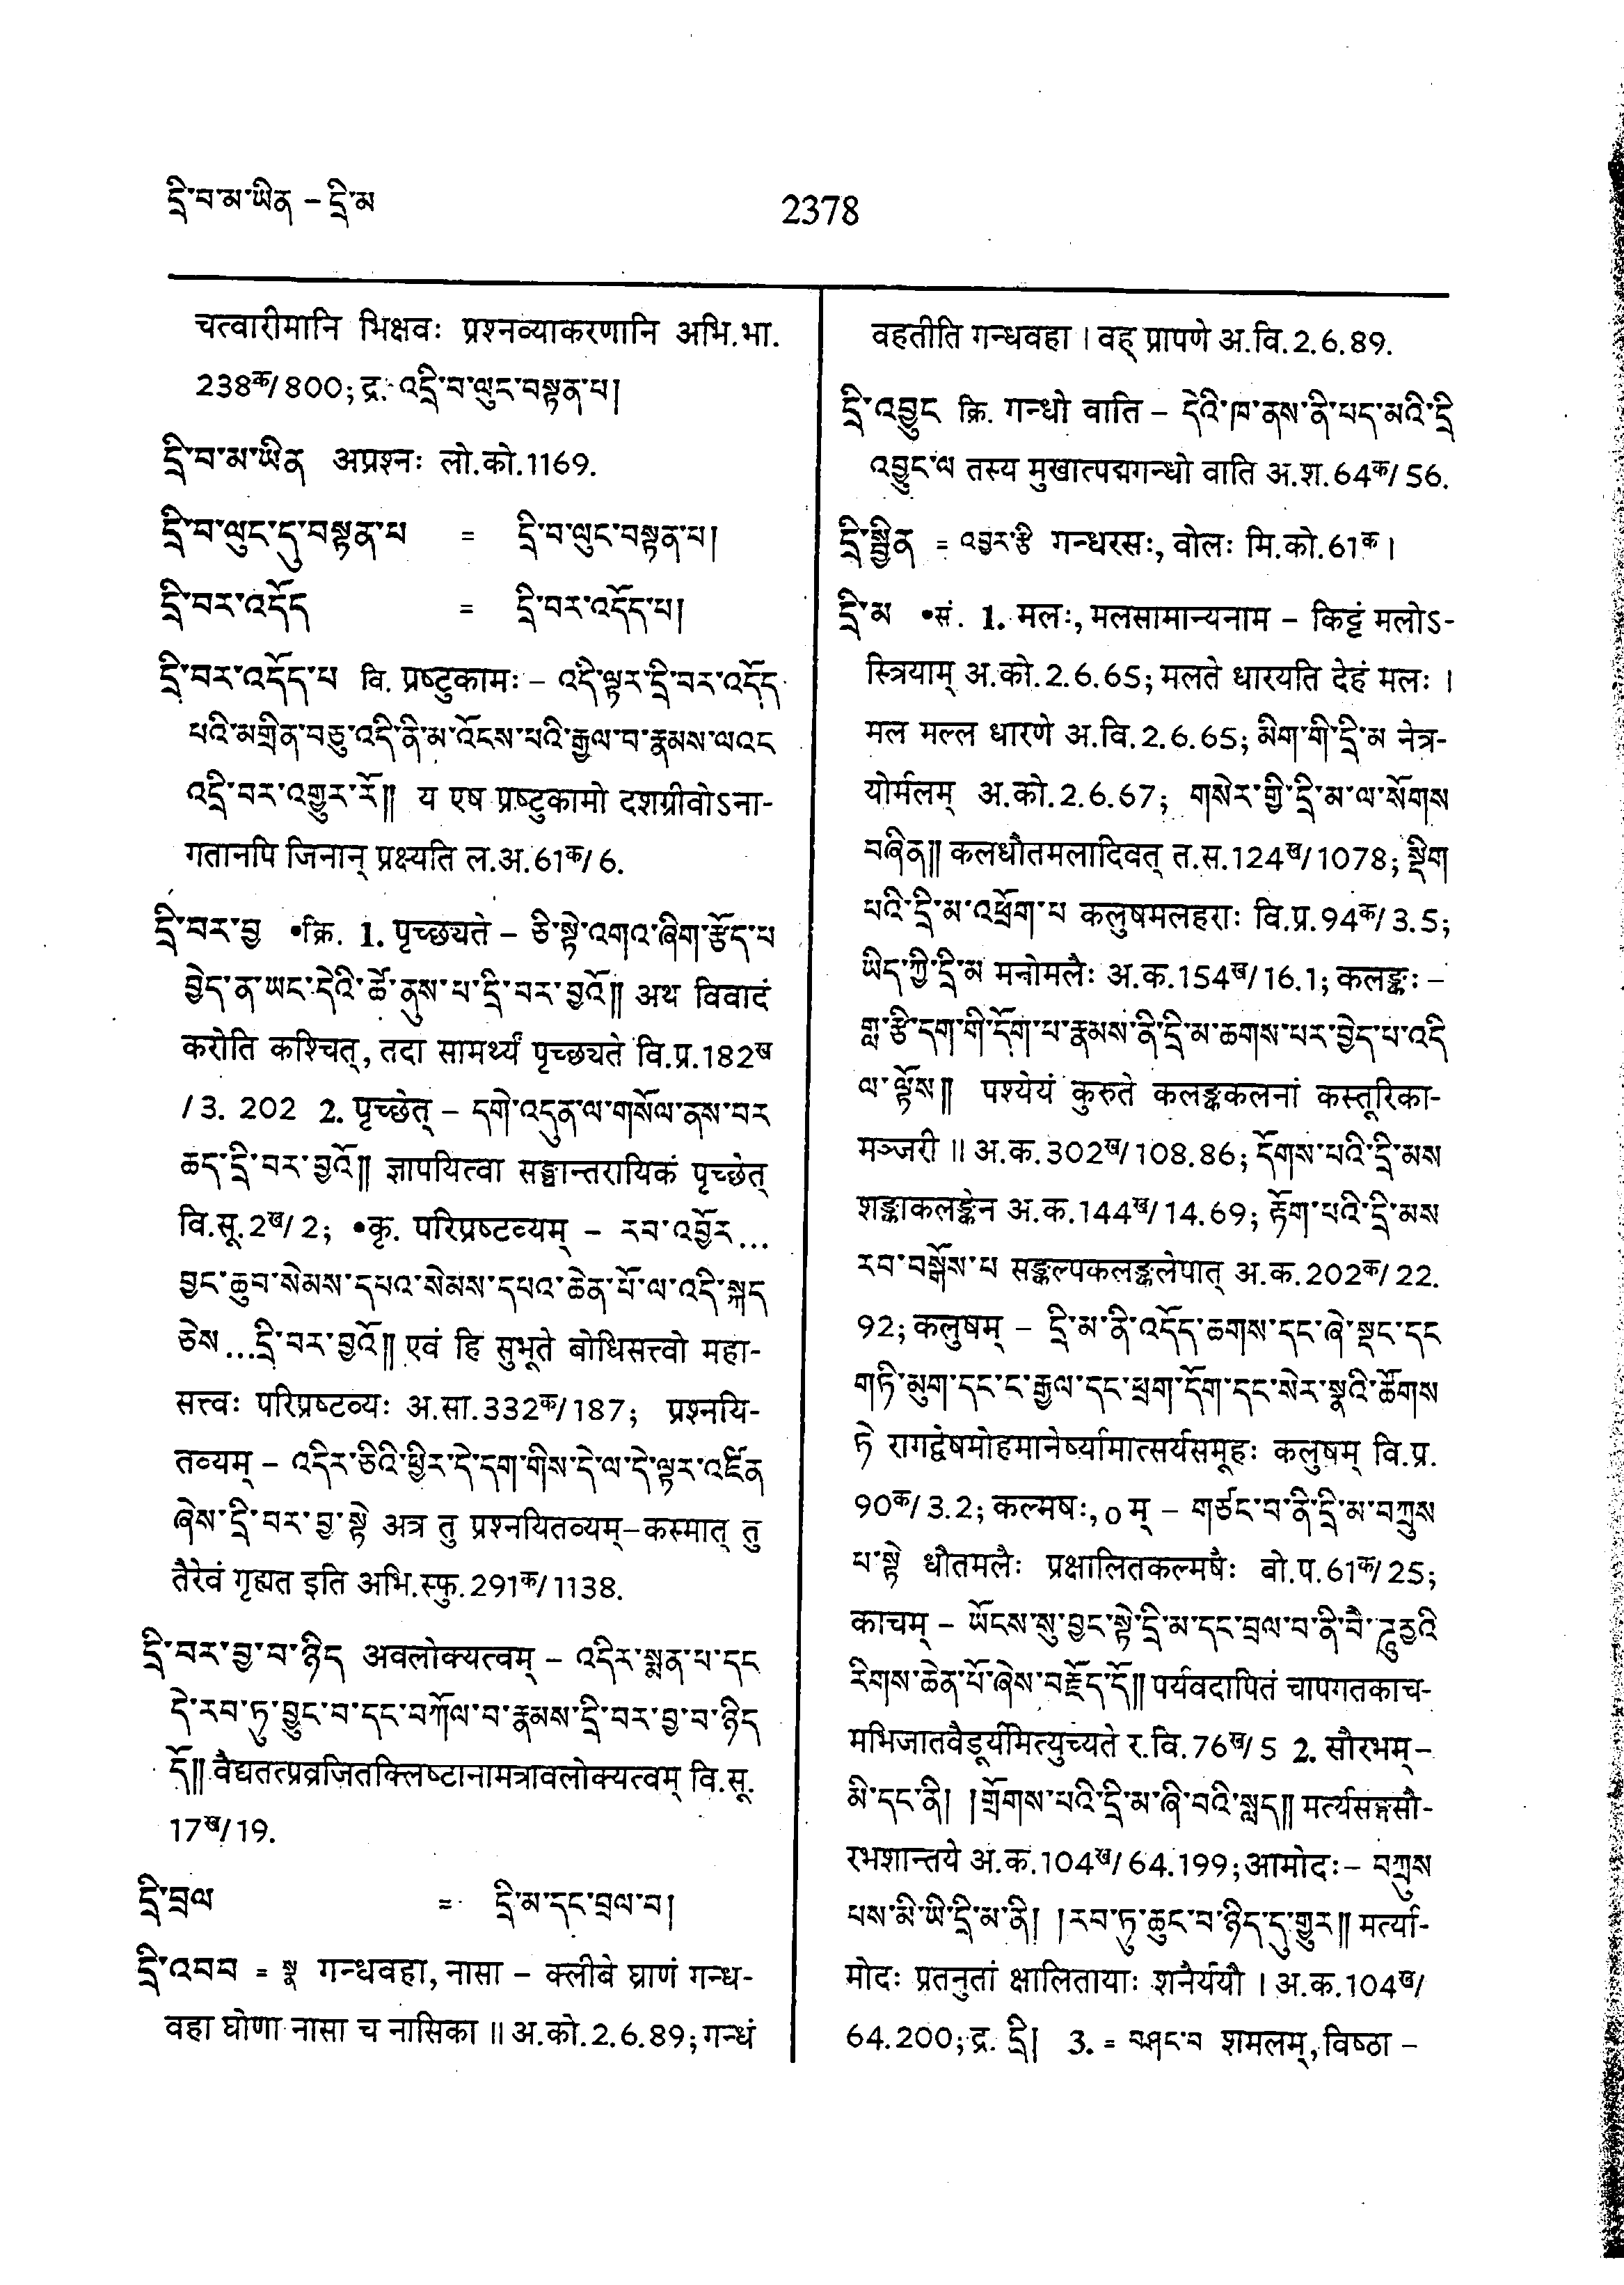 དྲི་བ་མ་ཡིན – དྲི་མ
2378
चत्वारीमानि भिक्षवः प्रश्नव्याकरणानि अभि.भा.
238क/800; द्र. འདྲི་བ་ལུང་བསྟན་པ།
དྲི་བ་མ་ཡིན अप्रश्नः लो.को.1169.
དྲི་བ་ལུང་དུ་བསྟན་པ = དྲི་བ་ལུང་བསྟན་པ།
དྲི་བར་འདོད = དྲི་བར་འདོད་པ།
དྲི་བར་འདོད་པ वि. प्रष्टुकामः – འདི་ལྟར་དྲི་བར་འདོད་
པའི་མགྲིན་བཅུ་འདི་ནི་མ་འོངས་པའི་རྒྱལ་བ་རྣམས་ལའང
འདྲི་བར་འགྱུར་རོ༎ य एष प्रष्टुकामो दशग्रीवोऽना-
गतानपि जिनान् प्रक्ष्यति ल.अ.61क/6.
དྲི་བར་བྱ •क्रि. 1. पृच्छ्यते – ཅི་སྟེ་འགའ་ཞིག་རྩོད་པ
བྱེད་ན་ཡང་དེའི་ཚེ་ནུས་པ་དྲི་བར་བྱའོ༎ अथ विवादं
करोति कश्चित्, तदा सामर्थ्यं पृच्छ्यते वि.प्र.182ख
/3. 202 2. पृच्छेत् – དགེ་འདུན་ལ་གསོལ་ནས་བར
ཆད་དྲི་བར་བྱའོ༎ ज्ञापयित्वा सङ्घान्तरायिकं पृच्छेत्
वि.सू.2ख/2; •कृ. परिप्रष्टव्यम् – རབ་འབྱོར...
བྱང་ཆུབ་སེམས་དཔའ་སེམས་དཔའ་ཆེན་པོ་ལ་འདི་སྐད
ཅེས...དྲི་བར་བྱའོ༎ एवं हि सुभूते बोधिसत्त्वो महा-
सत्त्वः परिप्रष्टव्यः अ.सा.332क/187; प्रश्नयि-
तव्यम् – འདིར་ཅིའི་ཕྱིར་དེ་དག་གིས་དེ་ལ་དེ་ལྟར་འཛིན
ཞེས་དྲི་བར་བྱ་སྟེ अत्र तु प्रश्नयितव्यम्–कस्मात् तु
तैरेवं गृह्यत इति अभि.स्फु.291क/1138.
དྲི་བར་བྱ་བ་ཉིད अवलोक्यत्वम् – འདིར་སྨན་པ་དང
དེ་རབ་ཏུ་བྱུང་བ་དང་བཀོལ་བ་རྣམས་དྲི་བར་བྱ་བ་ཉིད
དོ༎ वैद्यतत्प्रव्रजितक्लिष्टानामत्रावलोक्यत्वम् वि.सू.
17ख/19.
དྲི་བྲལ = དྲི་མ་དང་བྲལ་བ།
དྲི་འབབ = སྣ गन्धवहा, नासा – क्लीबे घ्राणं गन्ध-
वहा घोणा नासा च नासिका ॥ अ.को.2.6.89; गन्धं
वहतीति गन्धवहा । वह् प्रापणे अ.वि.2.6.89.
དྲི་འབྱུང क्रि. गन्धो वाति – དེའི་ཁ་ནས་ནི་པད་མའི་དྲི
འབྱུང་ལ तस्य मुखात्पद्मगन्धो वाति अ.श.64क/56.
དྲི་སྦྱིན = འབྱར་རྩི गन्धरसः, वोलः मि.को.61क ।
དྲི་མ •सं. 1. मलः, मलसामान्यनाम – किट्टं मलोऽ-
स्त्रियाम् अ.को.2.6.65; मलते धारयति देहं मलः ।
मल मल्ल धारणे अ.वि.2.6.65; མིག་གི་དྲི་མ नेत्र-
योर्मलम् अ.को.2.6.67; གསེར་གྱི་དྲི་མ་ལ་སོགས
བཞིན༎ कलधौतमलादिवत् त.स.124ख/1078; སྡིག
པའི་དྲི་མ་འཕྲོག་པ कलुषमलहराः वि.प्र.94क/3.5;
ཡིད་ཀྱི་དྲི་མ मनोमलैः अ.क.154ख/16.1; कलङ्कः –
གླ་རྩི་དག་གི་དོག་པ་རྣམས་ནི་དྲི་མ་ཆགས་པར་བྱེད་པ་འདི
ལ་ལྟོས༎ पश्येयं कुरुते कलङ्ककलनां कस्तूरिका-
मञ्जरी ॥ अ.क.302ख/108.86; དོགས་པའི་དྲི་མས
शङ्काकलङ्केन अ.क.144ख/14.69; རྟོག་པའི་དྲི་མས
རབ་བསྒོས་པ सङ्कल्पकलङ्कलेपात् अ.क.202क/22.
92; कलुषम् – དྲི་མ་ནི་འདོད་ཆགས་དང་ཞེ་སྡང་དང
གཏི་མུག་དང་ང་རྒྱལ་དང་ཕྲག་དོག་དང་སེར་སྣའི་ཚོགས
ཏེ रागद्वेषमोहमानेर्ष्यामात्सर्यसमूहः कलुषम् वि.प्र.
90क/3.2; कल्मषः, ०म् – གཙང་བ་ནི་དྲི་མ་བཀྲུས
པ་སྟེ धौतमलैः प्रक्षालितकल्मषैः बो.प.61क/25;
काचम् – ཡོངས་སུ་བྱང་སྟེ་དྲི་མ་དང་བྲལ་བ་ནི་བཻ་ཌཱུརྱའི
རིགས་ཆེན་པོ་ཞེས་བརྗོད་དོ༎ पर्यवदापितं चापगतकाच-
मभिजातवैडूर्यमित्युच्यते र.वि.76ख/5 2. सौरभम् –
མི་དང་ནི། །གྲོགས་པའི་དྲི་མ་ཞི་བའི་སླད༎ मर्त्यसङ्गसौ-
रभशान्तये अ.क.104ख/64.199; आमोदः – བཀྲུས
པས་མི་ཡི་དྲི་མ་ནི། །རབ་ཏུ་ཆུང་བ་ཉིད་དུ་གྱུར༎ मर्त्या-
मोदः प्रतनुतां क्षालितायाः शनैर्ययौ । अ.क.104ख/
64.200; द्र. དྲི། 3. = བཤང་བ शमलम्, विष्ठा –